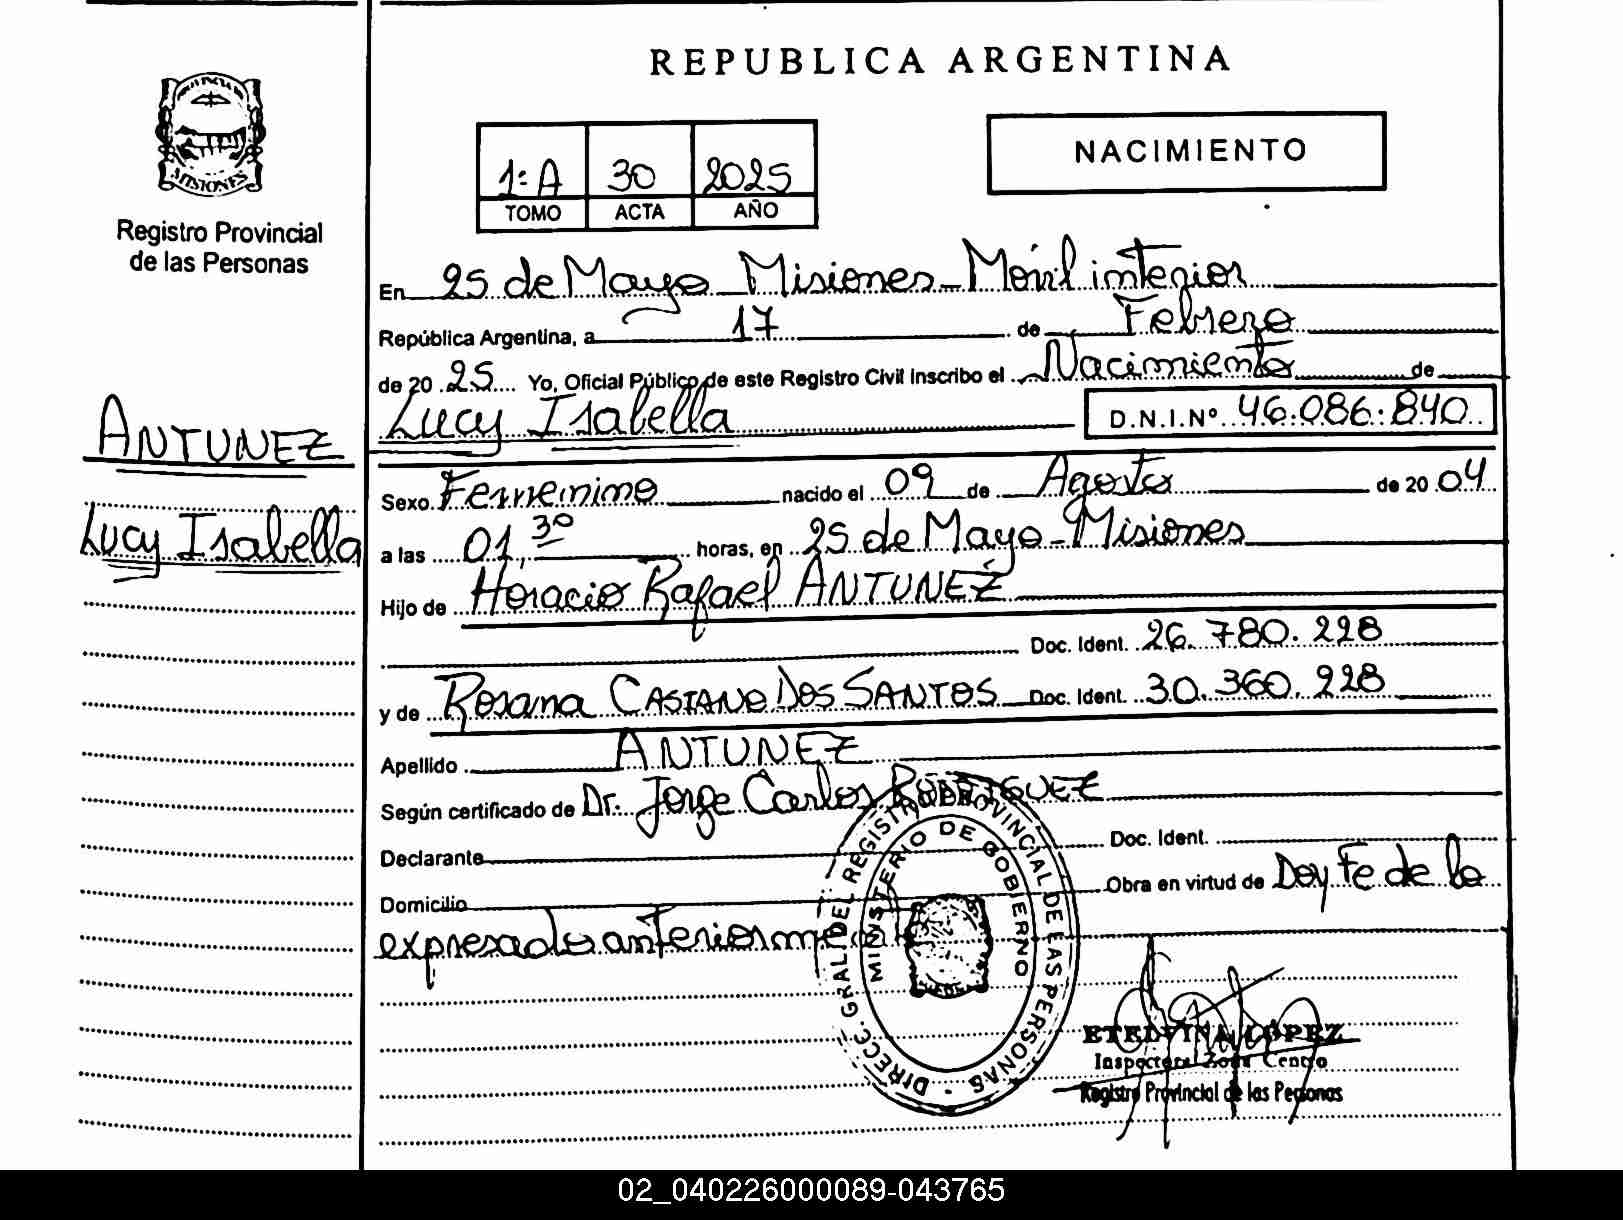 REPUBLICA ARGENTINA
MISIONES
Registro Provincial
de las Personas
1:A 30 2025
TOMO ACTA AÑO
NACIMIENTO
En 25 de Mayo Misiones - Móvil interior
República Argentina, a 17 de Febrero
de 20 25 Yo, Oficial Público de este Registro Civil Inscribo el Nacimiento de
Lucy Isabella D.N.I.Nº 46.086.840
ANTUNEZ
Lucy Isabella
Sexo Femenino nacido el 09 de Agosto de 20 04
a las 01,30 horas, en 25 de Mayo - Misiones
Hijo de Horacio Rafael ANTUNEZ
Doc. Ident. 26.780.228
y de Rosana CASTANO DOS SANTOS Doc. Ident. 30.360.228
Apellido ANTUNEZ
Según certificado de Dr. Jorge Carlos RODRIGUEZ
Declarante Doc. Ident.
Domicilio Obra en virtud de Doy Fe de lo
expresado anteriorme
DIREC. GRAL. DEL REGISTRO PROVINCIAL DE LAS PERSONAS
MINISTERIO DE GOBIERNO
ETELVINA LOPEZ
Inspectora Zona Centro
Registro Provincial de las Personas
02_040226000089-043765